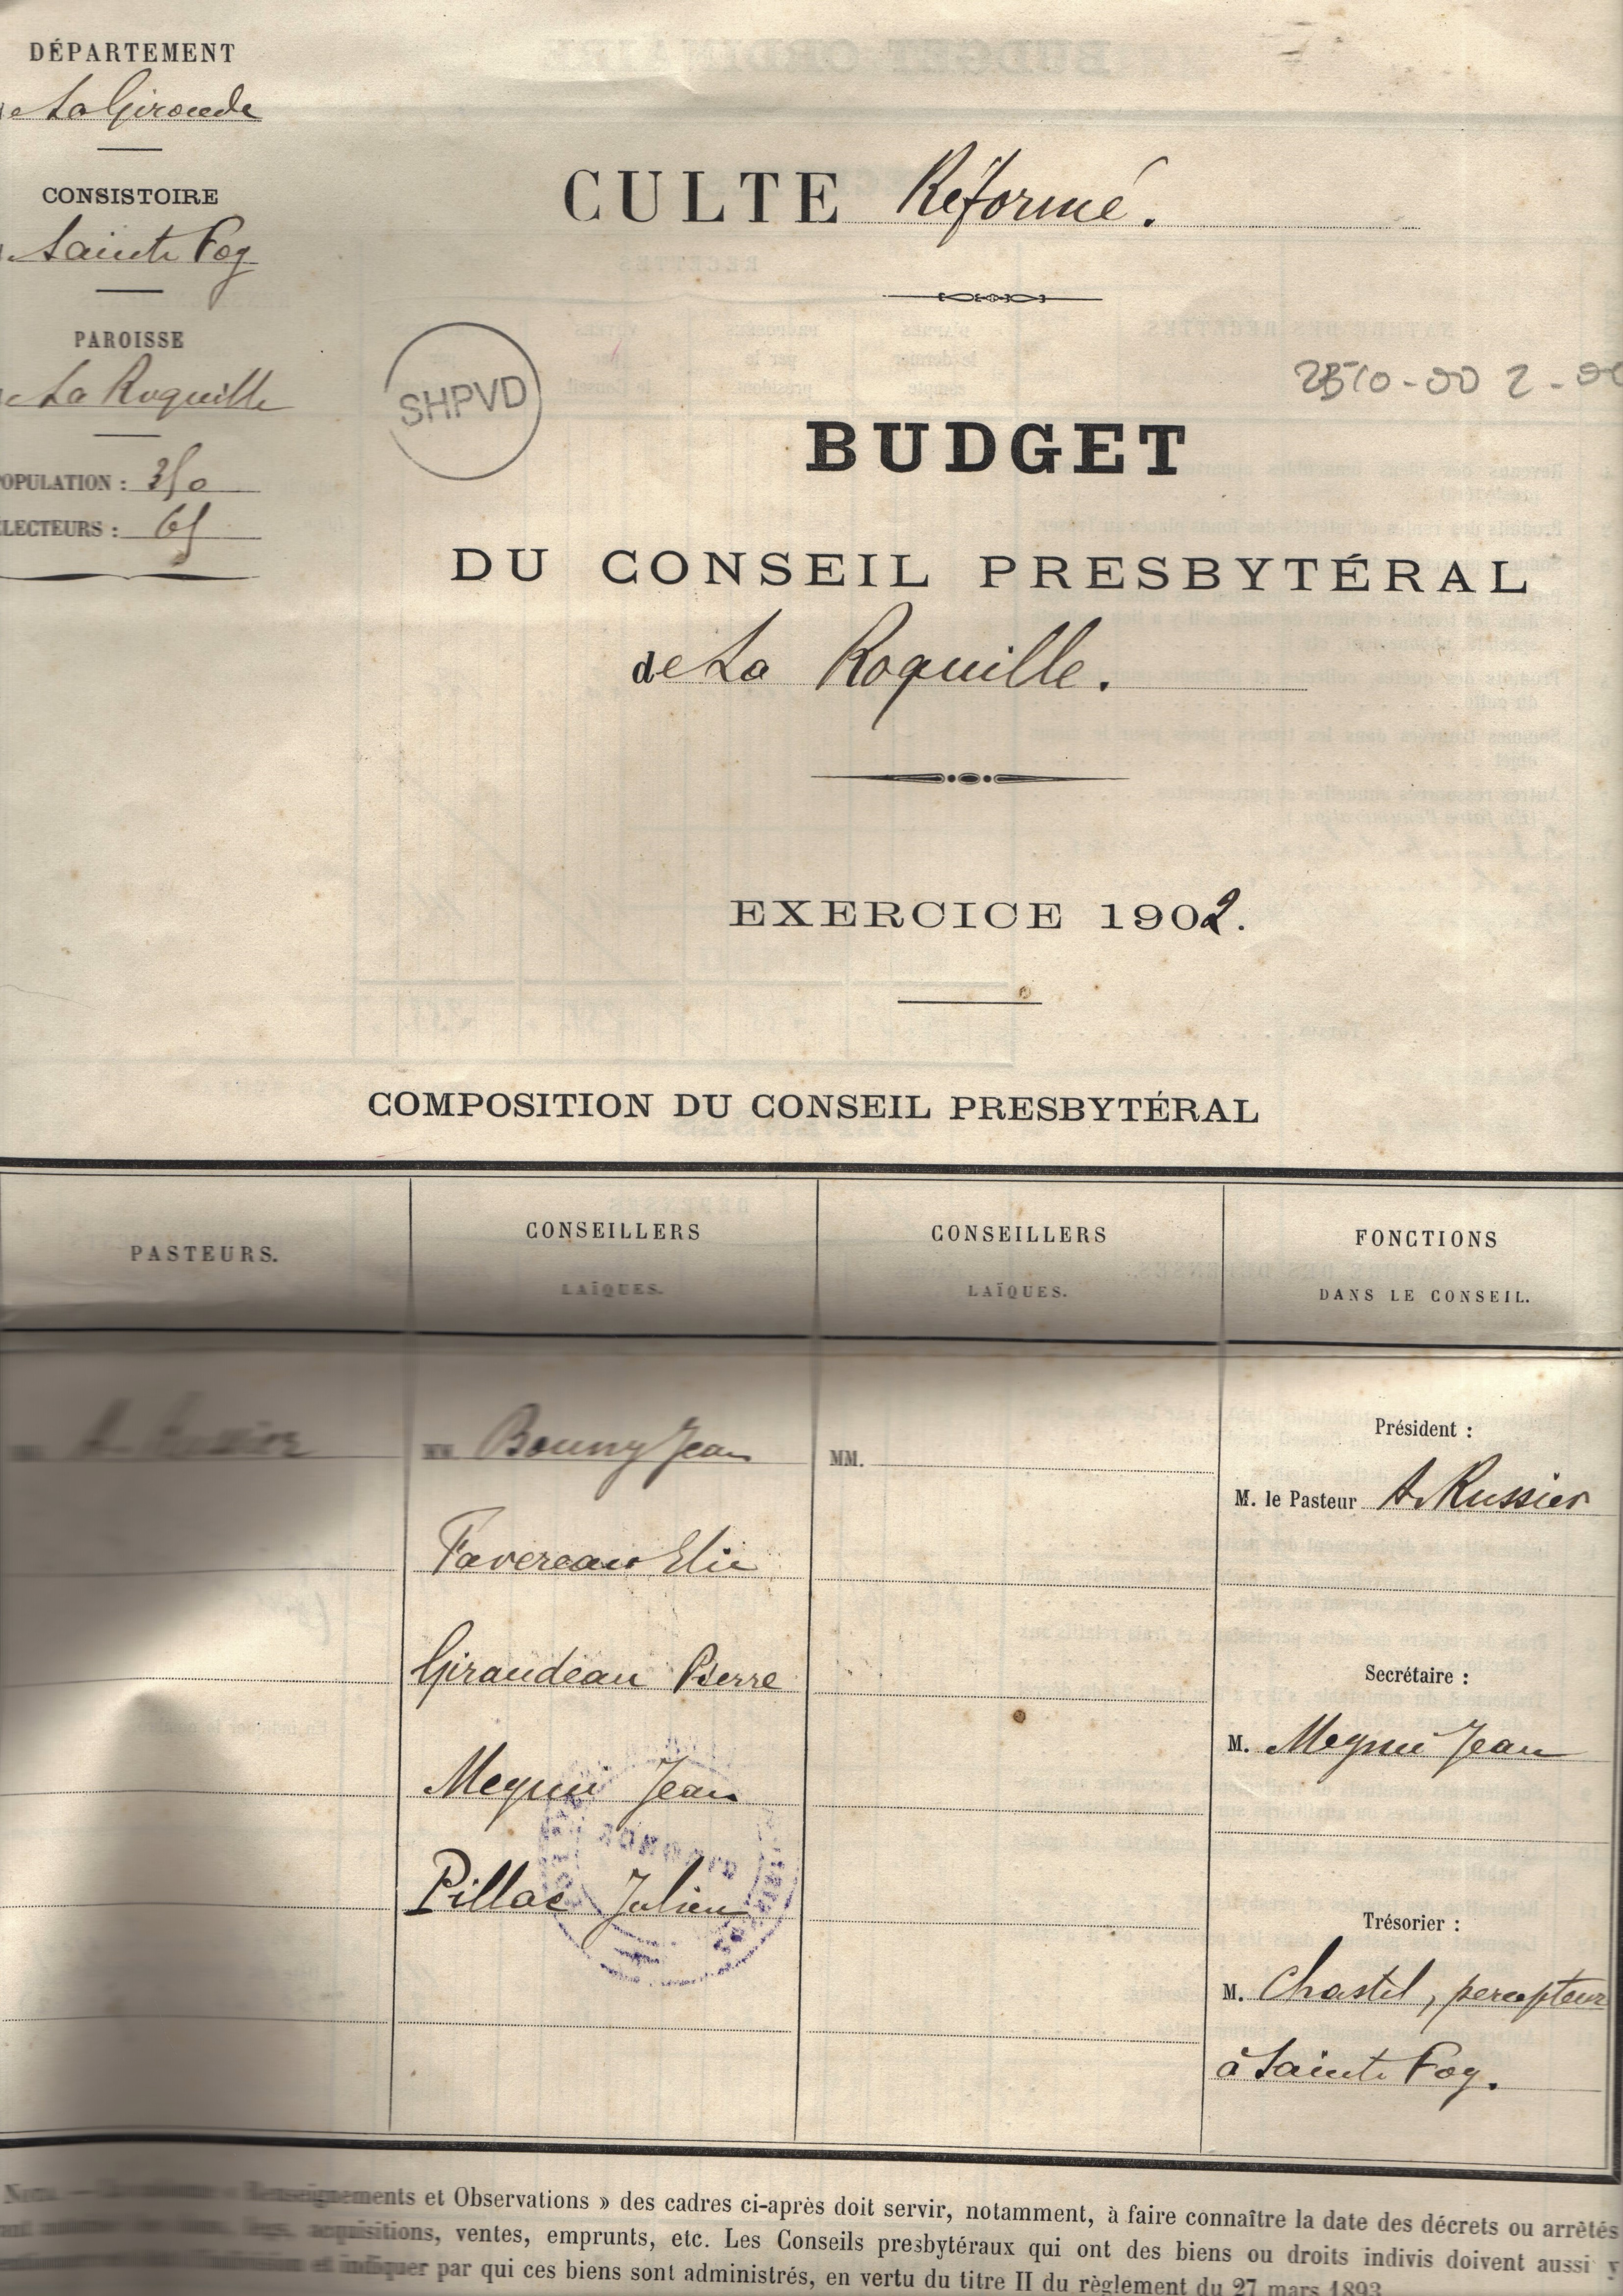 DÉPARTEMENT
La Gironde
CONSISTOIRE
Sainte Foy
PAROISSE
La Roquille
POPULATION : 350
ÉLECTEURS : 65
CULTE Réformé.
SHPVD
BUDGET
DU CONSEIL PRESBYTÉRAL
de La Roquille.
EXERCICE 1902.
COMPOSITION DU CONSEIL PRESBYTÉRAL
PASTEURS.
CONSEILLERS
LAÏQUES.
CONSEILLERS
LAÏQUES.
FONCTIONS
DANS LE CONSEIL.
A. Russier
MM. Bouny Jean
Favereau Elie
Giraudeau Pierre
Meynié Jean
Pillac Julien
MM.
Président :
M. le Pasteur A. Russier
Secrétaire :
M. Meynié Jean
Trésorier :
M. Chastel, percepteur
à Sainte Foy.
Renseignements et Observations » des cadres ci-après doit servir, notamment, à faire connaître la date des décrets ou arrêtés
legs, acquisitions, ventes, emprunts, etc. Les Conseils presbytéraux qui ont des biens ou droits indivis doivent aussi y
et indiquer par qui ces biens sont administrés, en vertu du titre II du règlement du 27 mars 1893